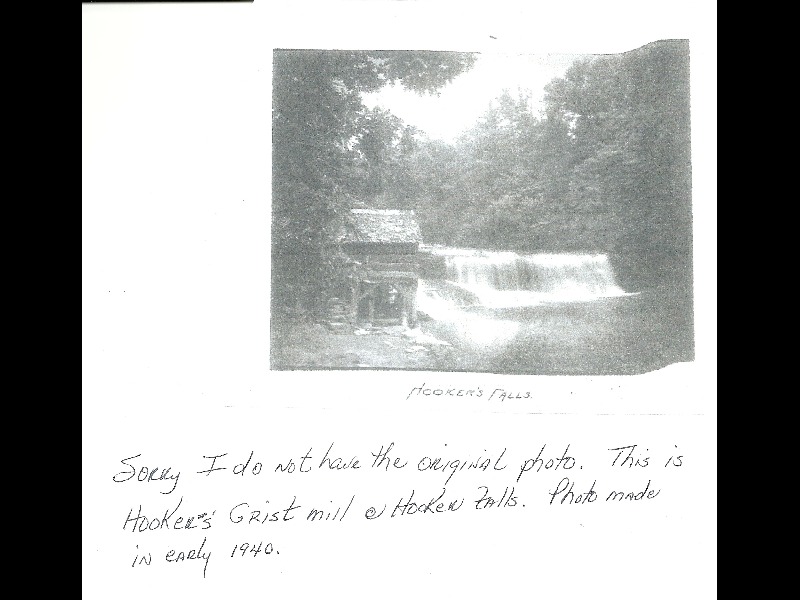 HOOKER'S FALLS.
Sorry I do not have the original photo. This is
Hooker's Grist mill @ Hooker Falls. Photo made
in early 1940.